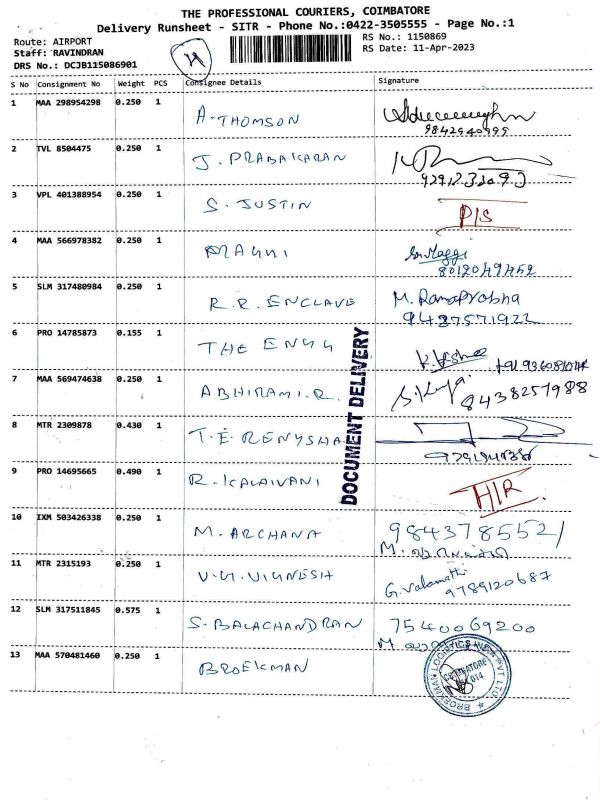 THE PROFESSIONAL COURIERS, COIMBATORE
Delivery Runsheet - SITR - Phone No.:0422-3505555 - Page No.:1
Route: AIRPORT
Staff: RAVINDRAN
DRS No.: DCJB115086901
RS No.: 1150869
RS Date: 11-Apr-2023
S No Consignment No Weight PCS Consignee Details Signature
1 MAA 298954298 0.250 1 A. THOMSON
9842940999
2 TVL 8504475 0.250 1 J. PRABAKARAN
3 VPL 401388954 0.250 1 S. JUSTIN P/S
4 MAA 566978382 0.250 1
8012049452
5 SLM 317480984 0.250 1 R.R. ENCLAVE M. Ramaprabha
9487571922
6 PRO 14785873 0.155 1 THE ENGG
7 MAA 569474638 0.250 1 ABHIRAMI.R. 8438257988
8 MTR 2309878 0.430 1 T.E. RENYSHA
9 PRO 14695665 0.490 1 R. KALAIVANI H/R.
10 IXM 503426338 0.250 1 M. ARCHANA 9843785521
11 MTR 2315193 0.250 1 V.G. VIGNESH G. Valarmathi
9789120687
12 SLM 317511845 0.575 1 S. BALACHANDRAN 7540069200
13 MAA 570481460 0.250 1 BROEKMAN
DOCUMENT DELIVERY
BROEKMAN LOGISTICS INDIA PVT LTD.
COIMBATORE